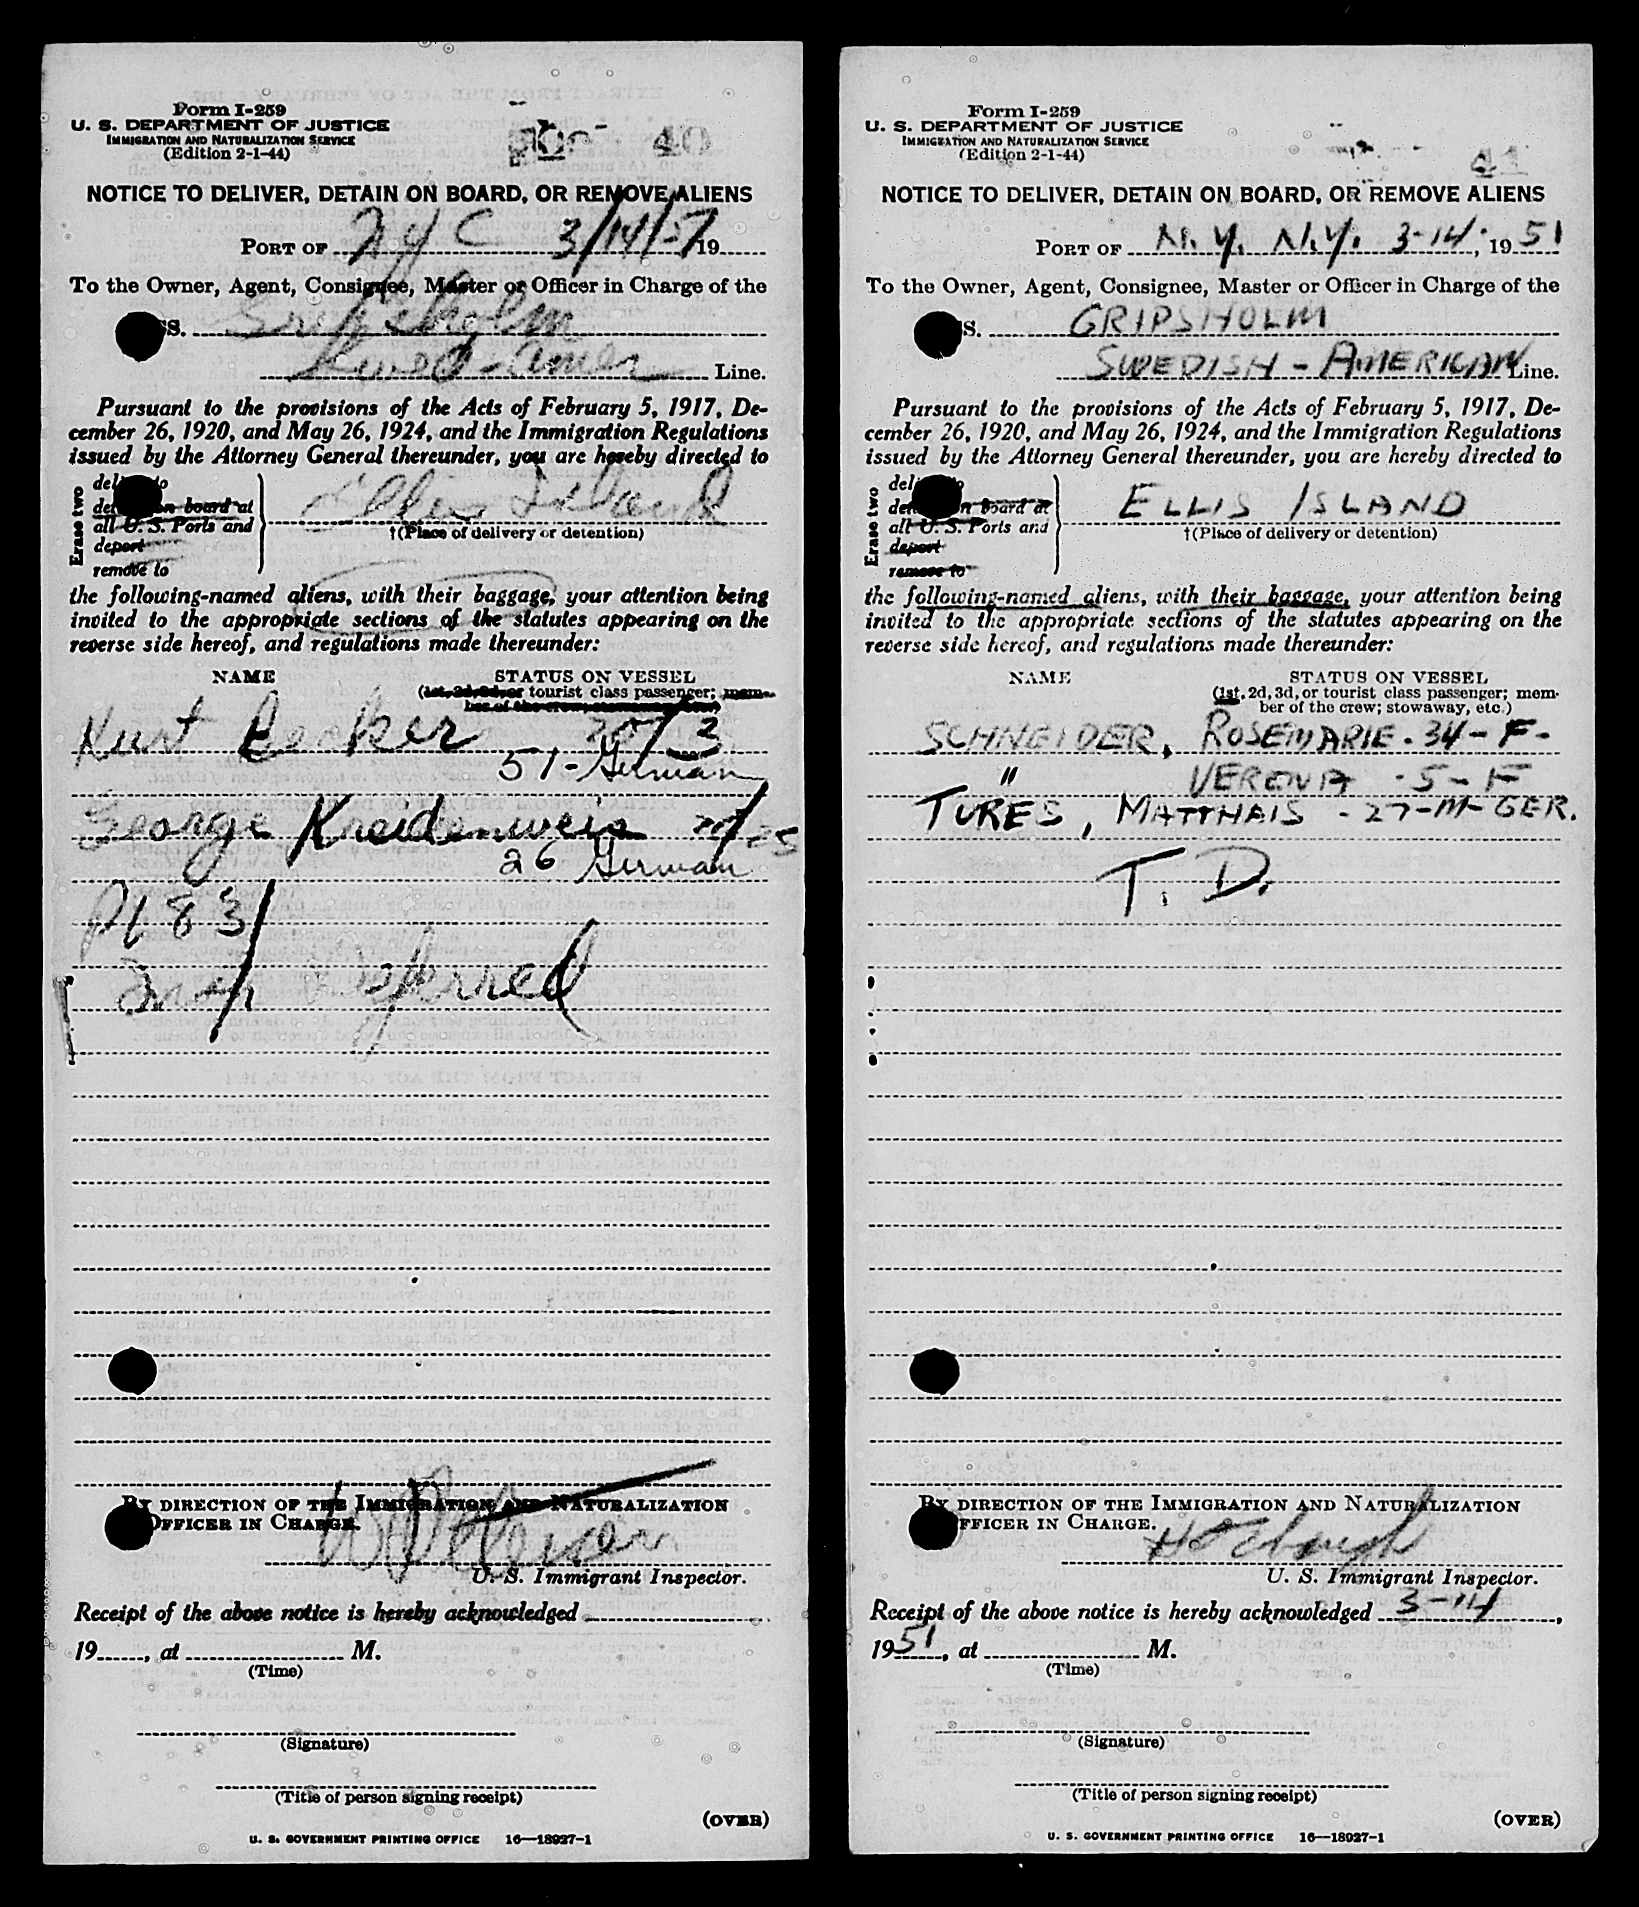 Form I-259
U. S. DEPARTMENT OF JUSTICE
IMMIGRATION AND NATURALIZATION SERVICE
(Edition 2-1-44)
40
NOTICE TO DELIVER, DETAIN ON BOARD, OR REMOVE ALIENS
PORT OF N Y C 3/14/51 19
To the Owner, Agent, Consignee, Master or Officer in Charge of the
SS. Gripsholm
Swed-Amer Line.
Pursuant to the provisions of the Acts of February 5, 1917, De-
cember 26, 1920, and May 26, 1924, and the Immigration Regulations
issued by the Attorney General thereunder, you are hereby directed to
Erase two
on board at
all U. S. Ports and
deport
remove to
Ellis Island
†(Place of delivery or detention)
the following-named aliens, with their baggage, your attention being
invited to the appropriate sections of the statutes appearing on the
reverse side hereof, and regulations made thereunder:
NAME STATUS ON VESSEL
(1st, 2d, 3d, or tourist class passenger; mem-
ber of the crew; stowaway, etc.)
Kurt Becker
51 - German
George Kreidenweis
26 German
Deferred
BY DIRECTION OF THE IMMIGRATION AND NATURALIZATION
OFFICER IN CHARGE.
U. S. Immigrant Inspector.
Receipt of the above notice is hereby acknowledged
19 , at M.
(Time)
(Signature)
(Title of person signing receipt)
(OVER)
U. S. GOVERNMENT PRINTING OFFICE 16—18927-1
Form I-259
U. S. DEPARTMENT OF JUSTICE
IMMIGRATION AND NATURALIZATION SERVICE
(Edition 2-1-44)
41
NOTICE TO DELIVER, DETAIN ON BOARD, OR REMOVE ALIENS
PORT OF N. Y. N. Y. 3-14, 1951
To the Owner, Agent, Consignee, Master or Officer in Charge of the
SS. GRIPSHOLM
SWEDISH - AMERICAN Line.
Pursuant to the provisions of the Acts of February 5, 1917, De-
cember 26, 1920, and May 26, 1924, and the Immigration Regulations
issued by the Attorney General thereunder, you are hereby directed to
Erase two
on board at
all U. S. Ports and
deport
remove to
ELLIS ISLAND
†(Place of delivery or detention)
the following-named aliens, with their baggage, your attention being
invited to the appropriate sections of the statutes appearing on the
reverse side hereof, and regulations made thereunder:
NAME STATUS ON VESSEL
(1st, 2d, 3d, or tourist class passenger; mem-
ber of the crew; stowaway, etc.)
SCHNEIDER, ROSEMARIE - 34 - F -
" VERENA - 5 - F
TURES, MATTHAIS - 27 - M - GER.
T. D.
BY DIRECTION OF THE IMMIGRATION AND NATURALIZATION
OFFICER IN CHARGE.
U. S. Immigrant Inspector.
Receipt of the above notice is hereby acknowledged 3-14,
1951, at M.
(Time)
(Signature)
(Title of person signing receipt)
(OVER)
U. S. GOVERNMENT PRINTING OFFICE 16—18927-1